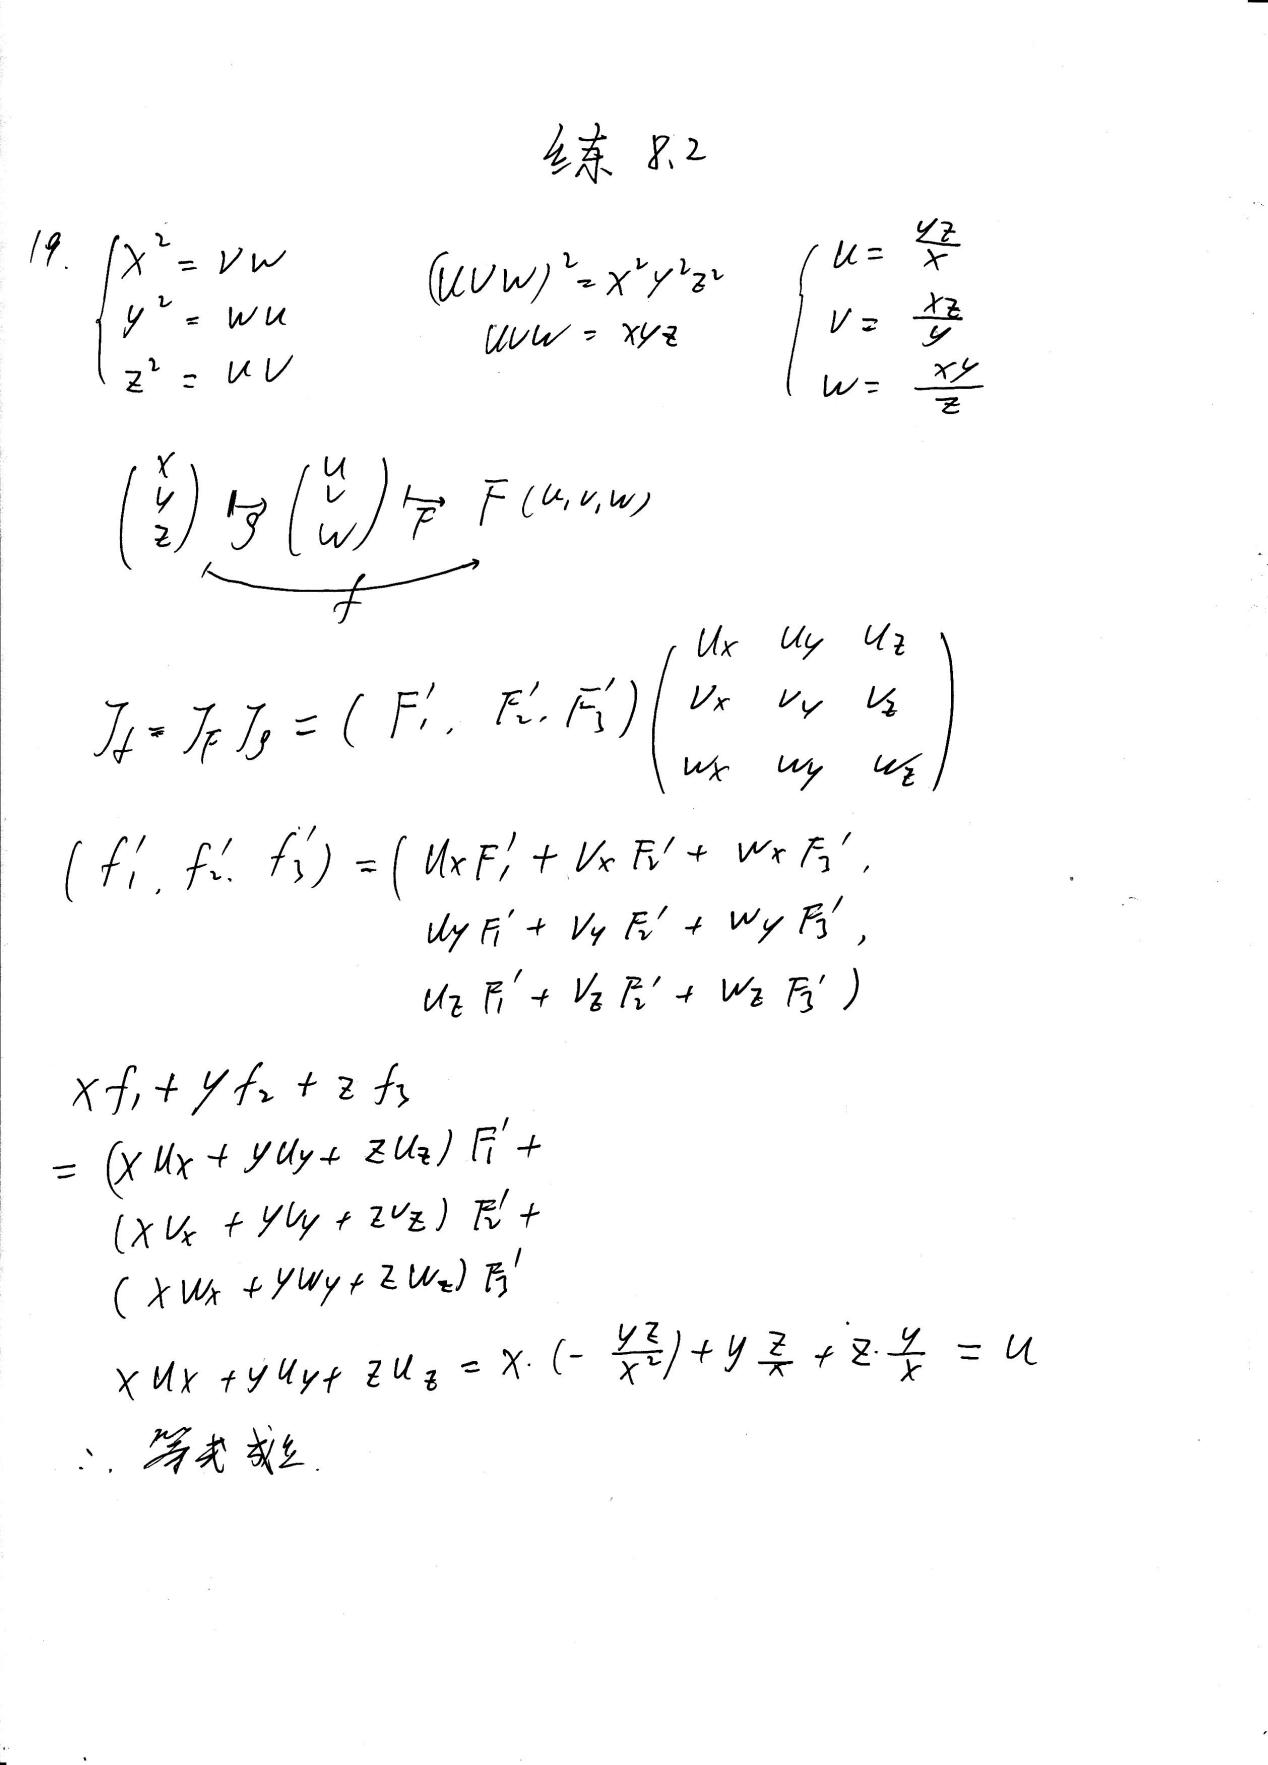 练 8.2
19. { x² = vw   (uvw)² = x²y²z²   { u = yz/x
y² = wu   uvw = xyz   v = xz/y
z² = uv   w = xy/z
(x y z) ↦g (u v w) ↦F F(u,v,w)
f
J_f = J_F J_g = (F₁', F₂', F₃') ( u_x u_y u_z
v_x v_y v_z
w_x w_y w_z )
(f₁', f₂', f₃') = ( u_x F₁' + v_x F₂' + w_x F₃',
u_y F₁' + v_y F₂' + w_y F₃',
u_z F₁' + v_z F₂' + w_z F₃' )
x f₁ + y f₂ + z f₃
= (x u_x + y u_y + z u_z) F₁' +
(x v_x + y v_y + z v_z) F₂' +
(x w_x + y w_y + z w_z) F₃'
x u_x + y u_y + z u_z = x·(- yz/x²) + y z/x + z·y/x = u
∴ 等式成立.